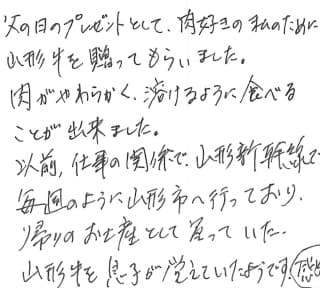 父の日のプレゼントとして、肉好きの私のために
山形牛を贈ってもらいました。
肉がやわらかく、溶けるように食べる
ことが出来ました。
以前、仕事の関係で、山形新幹線で
毎週のように山形市へ行っており、
帰りのお土産として買っていた、
山形牛を息子が覚えていたようです。